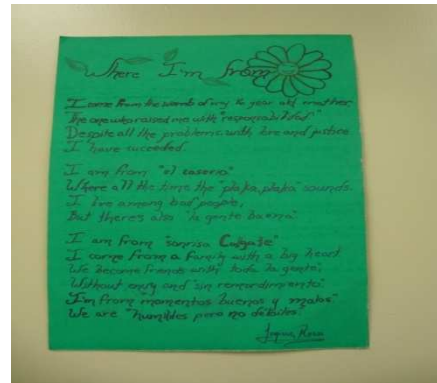 Where I'm from
I come from the womb of my 16 year old mother,
The one who raised me with "responsabilidad"
Despite all the problems, with love and justice
I have succeeded.
I am from "el caserio"
Where all the time the "plaka, plaka" sounds.
I live among bad people,
But theres also "la gente buena"
I am from "sonrisa Colgate"
I come from a family with a big heart
We become friends with "toda la gente",
Without envy and "sin remordimiento"
I'm from "momentos buenos y malos"
We are "humildes pero no débiles".